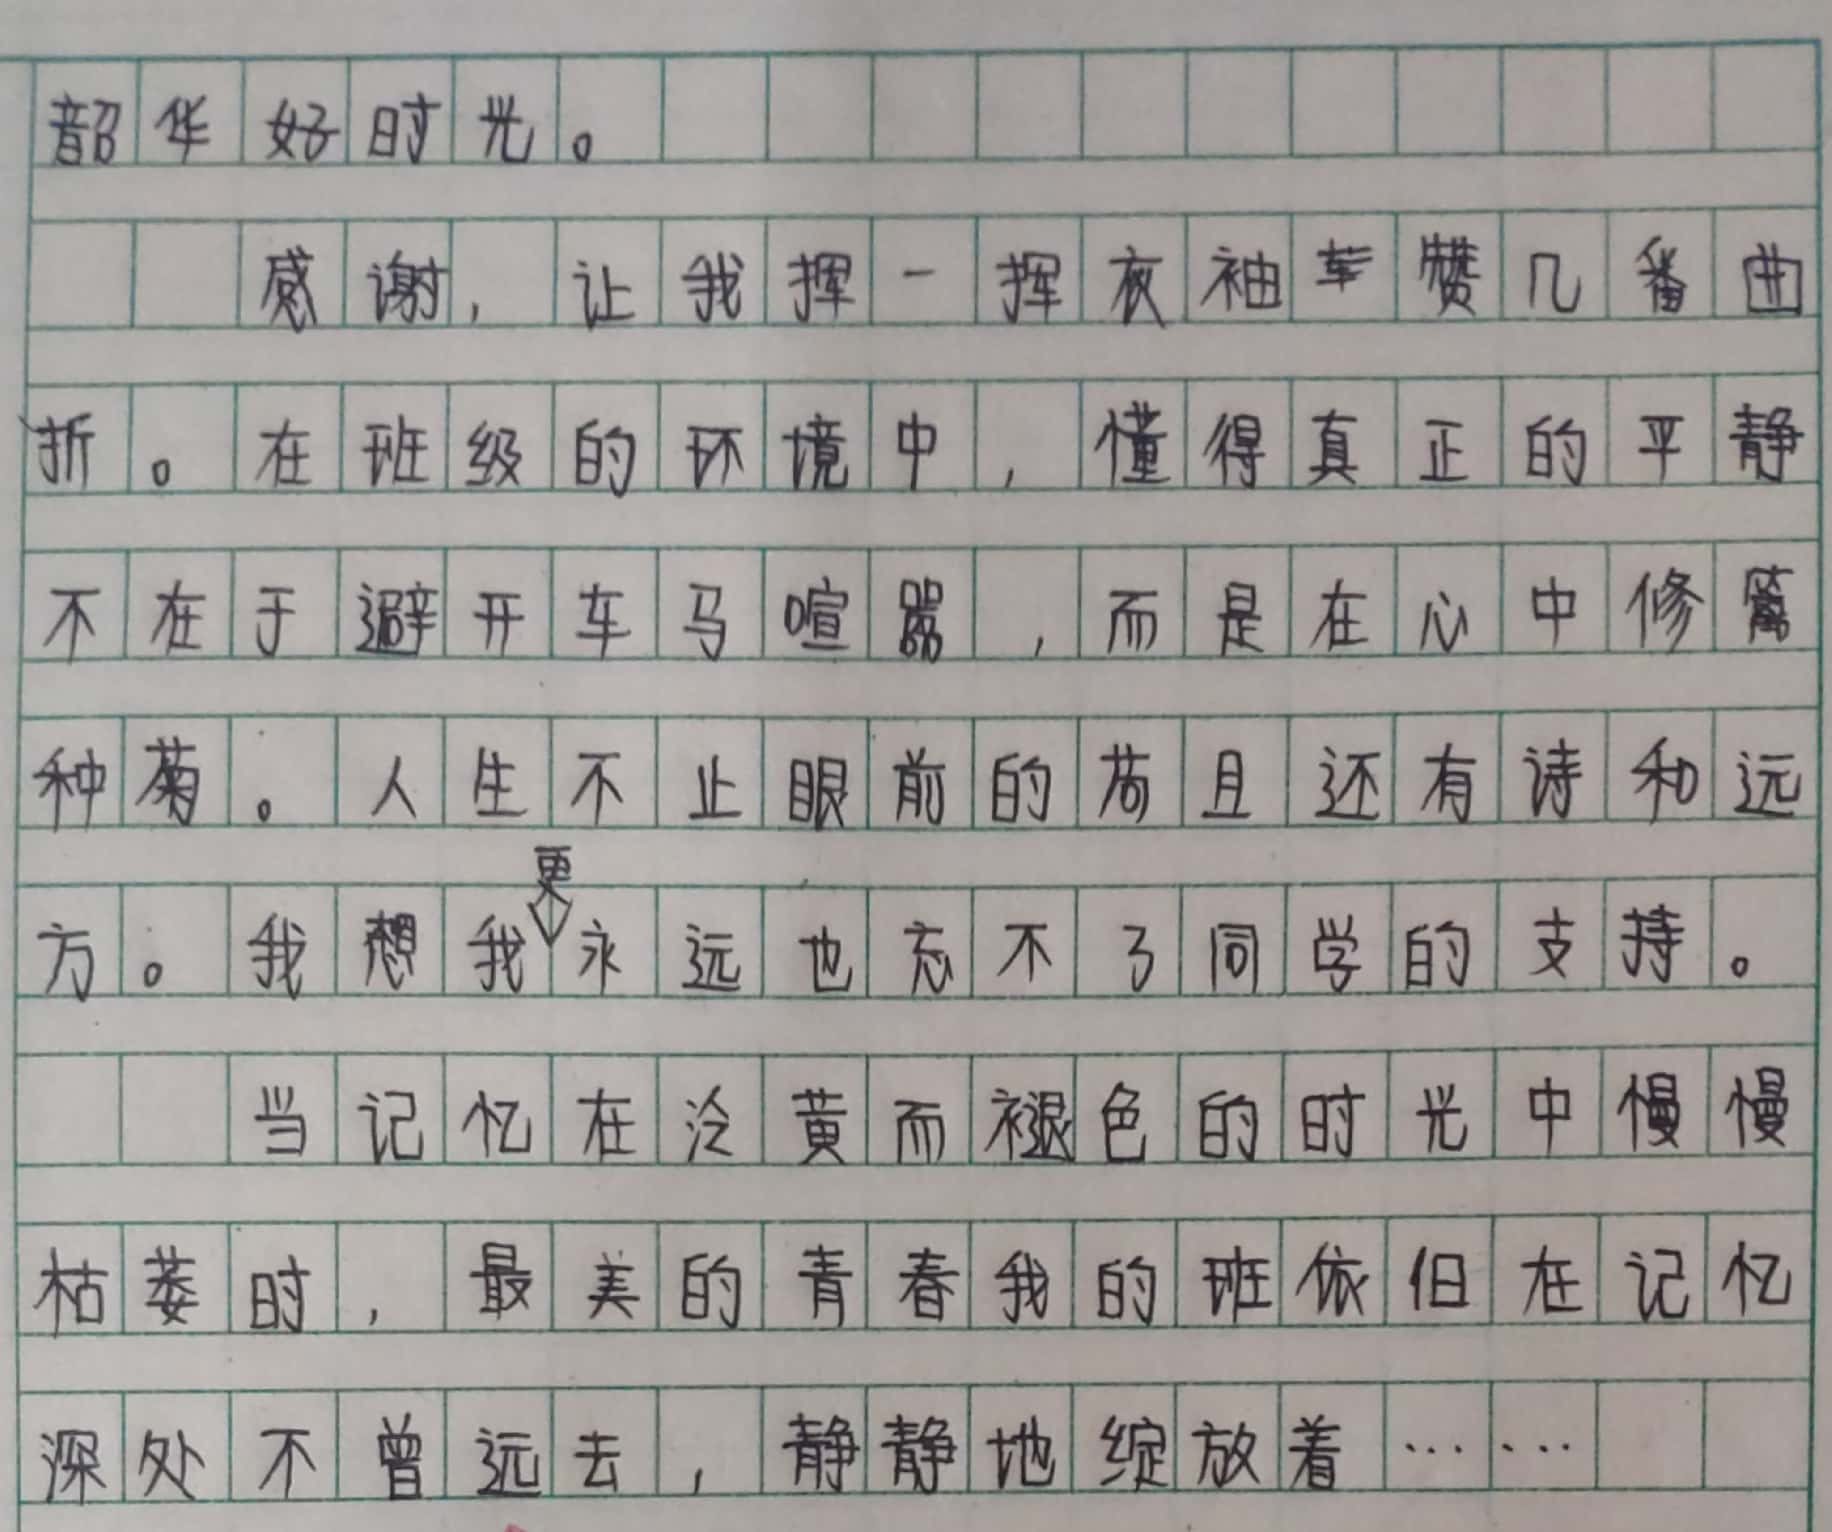 韶华好时光。
感谢,让我挥一挥衣袖牵赞几番曲
折。在班级的环境中,懂得真正的平静
不在于避开车马喧嚣,而是在心中修篱
种菊。人生不止眼前的苟且还有诗和远
方。我想我更永远也忘不了同学的支持。
当记忆在泠黄而褪色的时光中慢慢
枯萎时,最美的青春我的班依但在记忆
深处不曾远去,静静地绽放着……